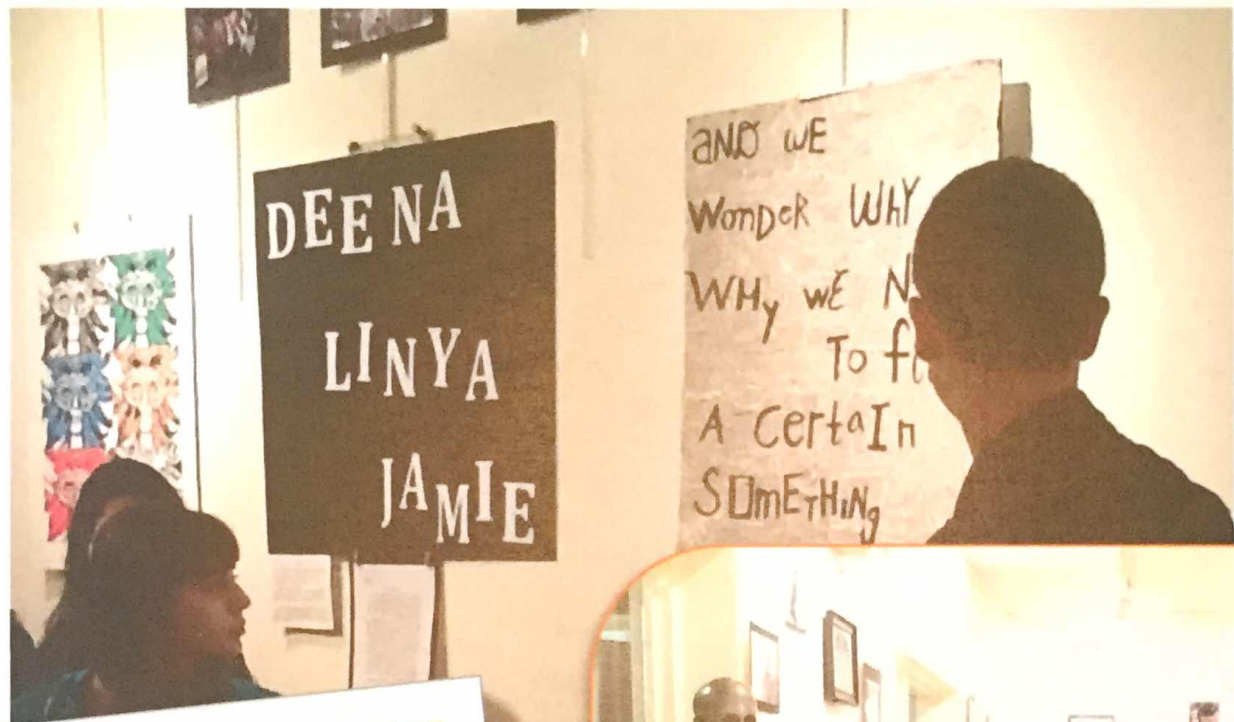 DEENA
LINYA
JAMIE
aND WE
WonDeR WhY
WHy wE
To
A CertaIn
SOmETHINg